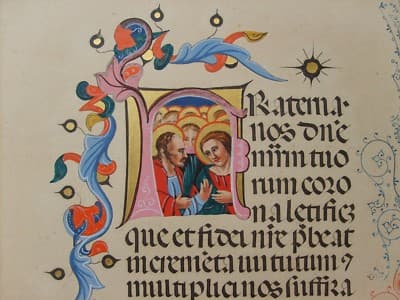 FRaterna
nos dn̄e
mr̄m tuo
rum coro
na letificꝫ
que et fidei nr̄e p̄beat
incremēta uirtutum ⁊
multiplici nos suffra